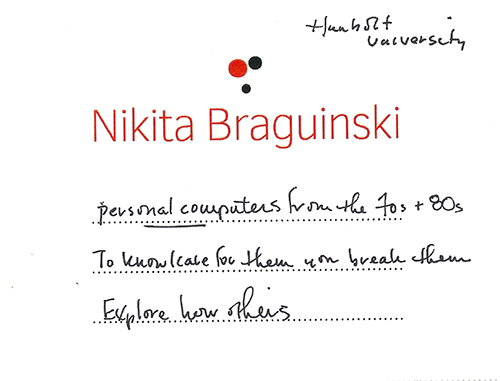 Humbolt
University
Nikita Braguinski
personal computers from the 70s + 80s
To know/care for them you break them
Explore how others